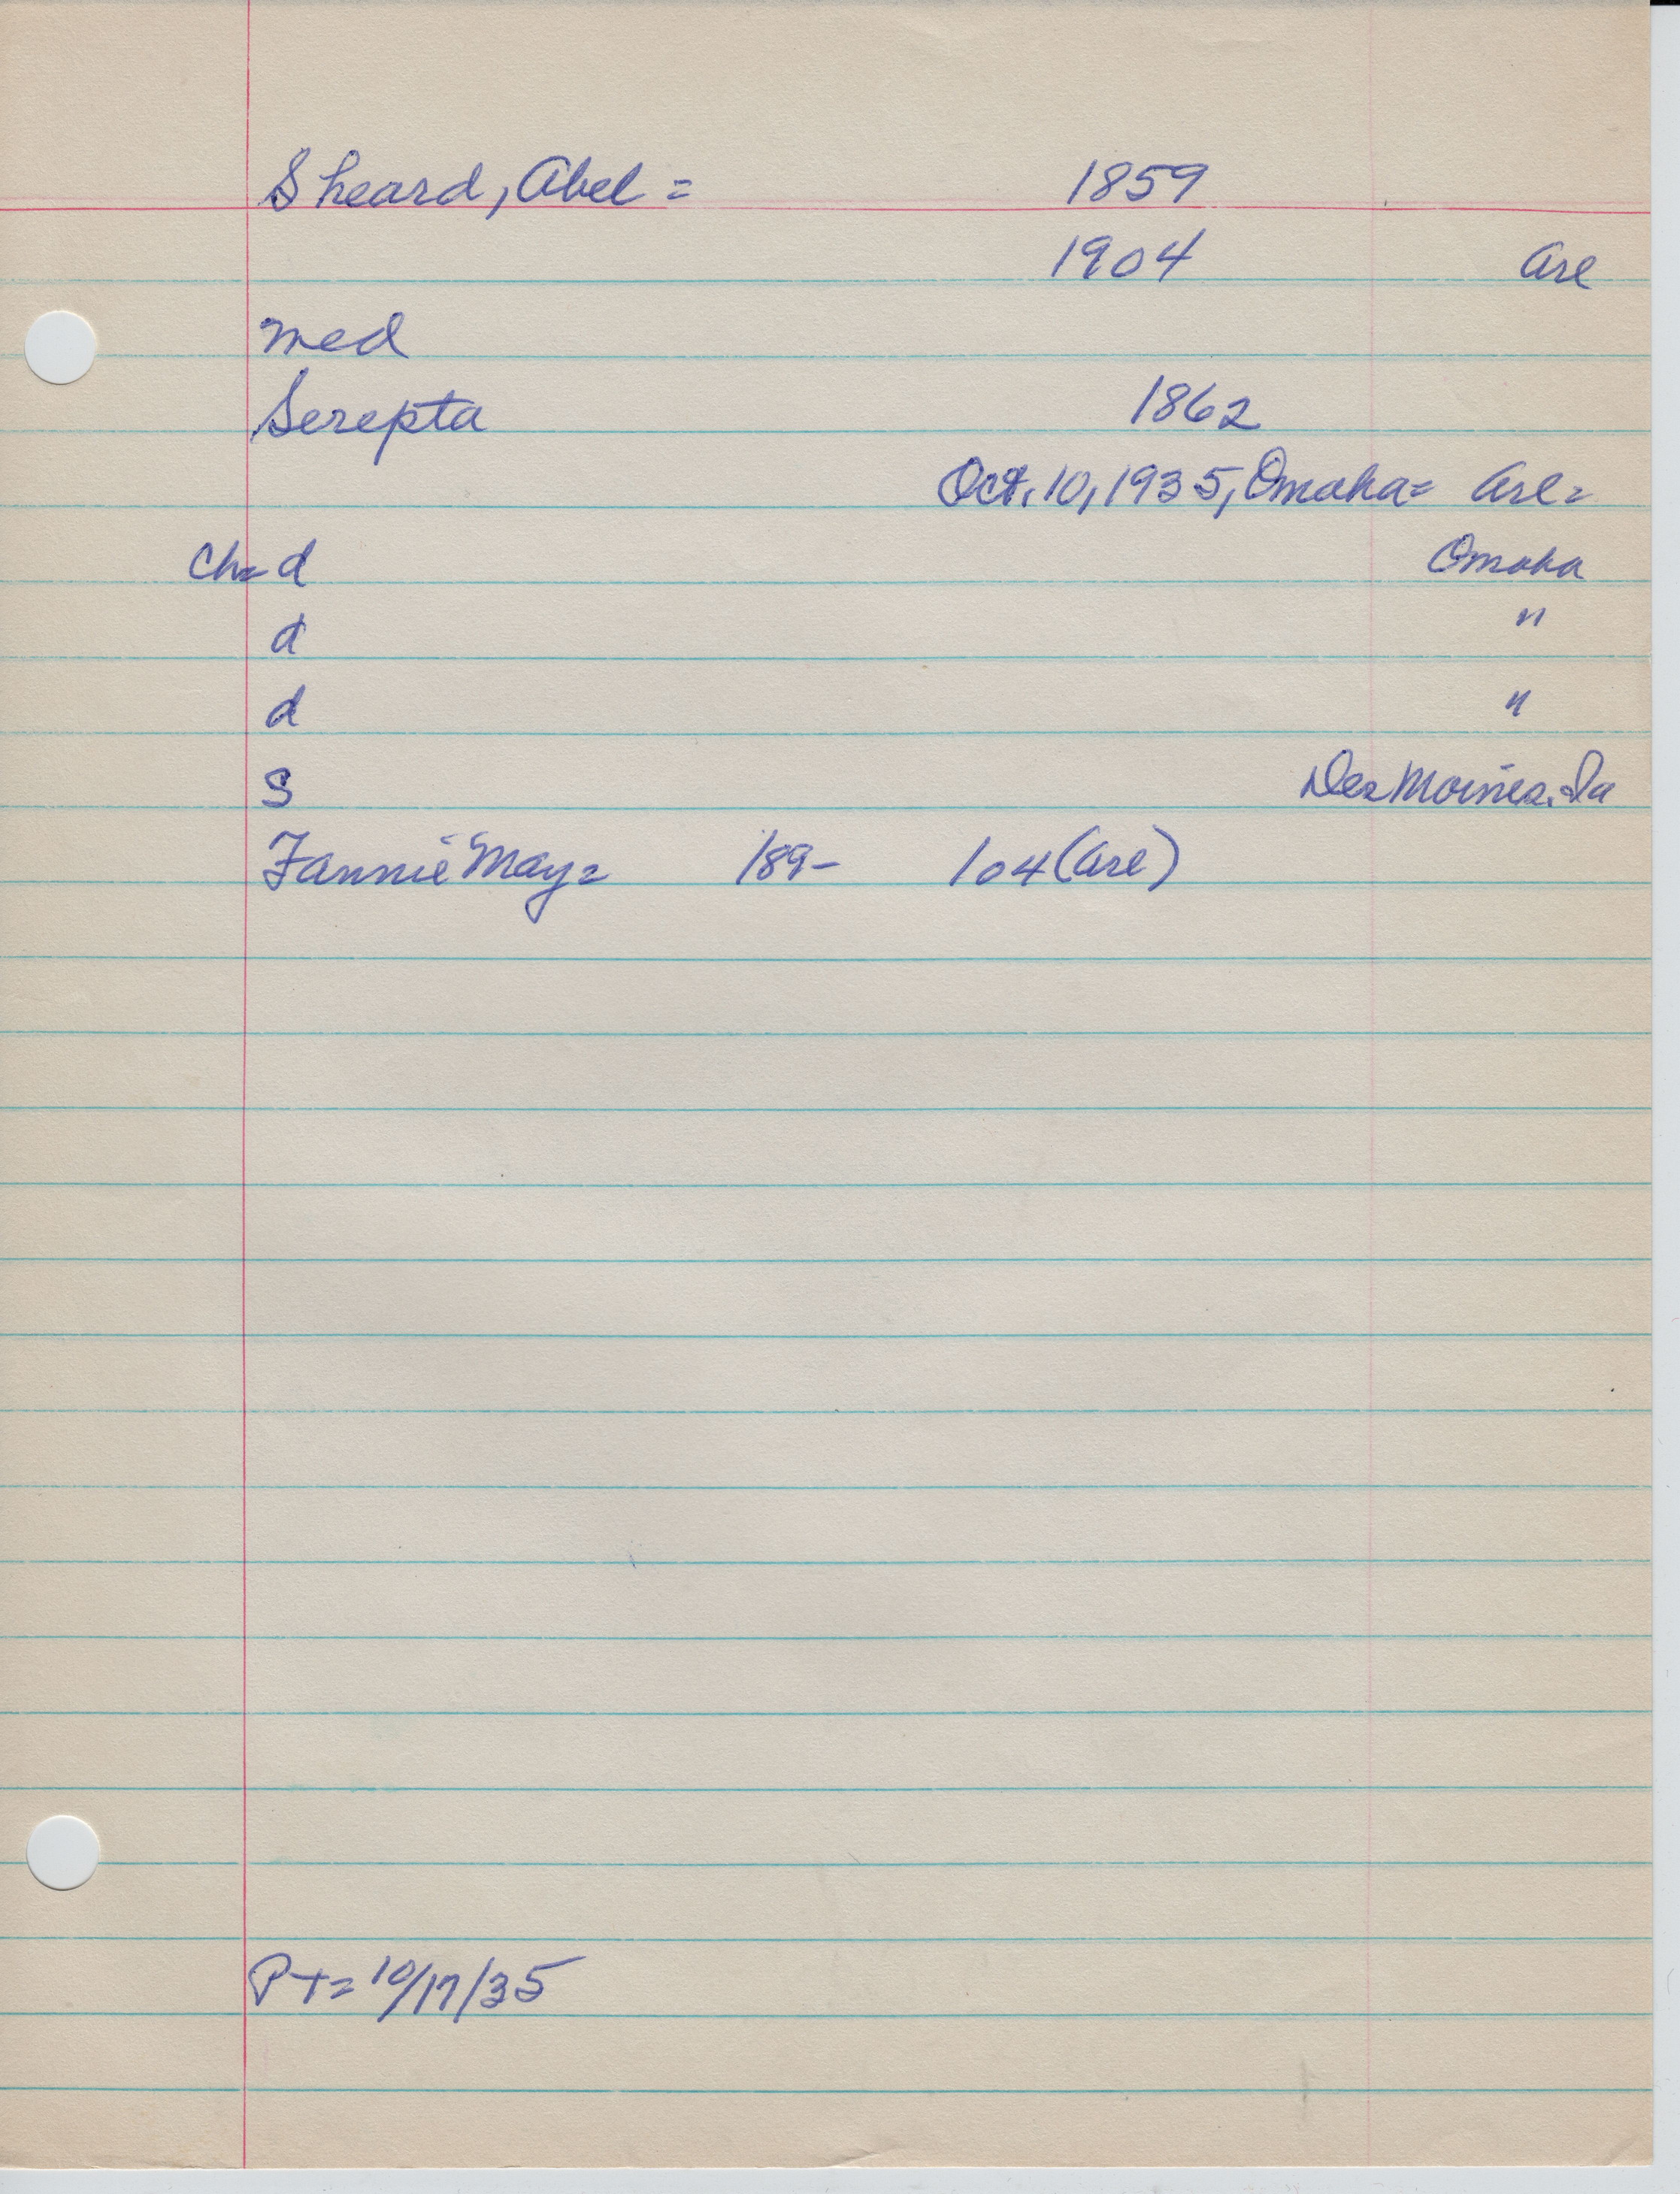 Sheard, Abel = 1859
1904 Arl
med
Serepta 1862
Oct. 10, 1935, Omaha = Arl =
Ch = d Omaha
d "
d "
s Des Moines, Ia
Fannie May = 189- 104 (Arl)
PT = 10/17/35